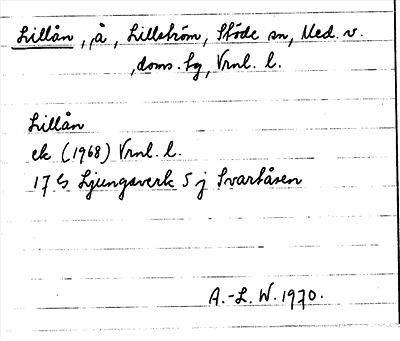 Lillån, å, Lillström, Stöde sn, Med. v.
, doms. lg, Vrnl. l.
Lillån
ek (1968) Vrnl. l.
17 G Ljungaverk 5 j Svartåsen
A.-L. W. 1970.